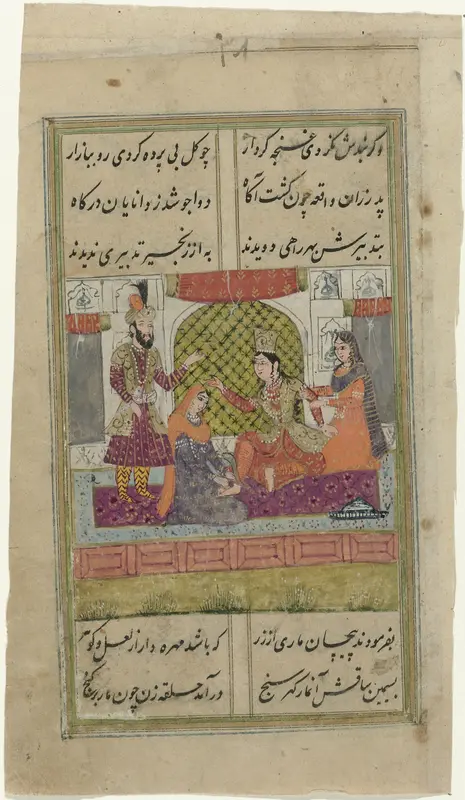 وگر بندش نکردی غنچه کردار چو گل بی پرده کردی رو ببازار
پدر زان واقعه چون گشت آگاه دواجو شد ز دانایان درگاه
بتدبیرش بهر راهی دویدند به از زنجیر تدبیری ندیدند
بفرمودند پیچان ماری از زر که باشد مهره دار از لعل و گوهر
بسیمین ساقش آن مار گهر سنج درآمد حلقه زن چون مار بر گنج